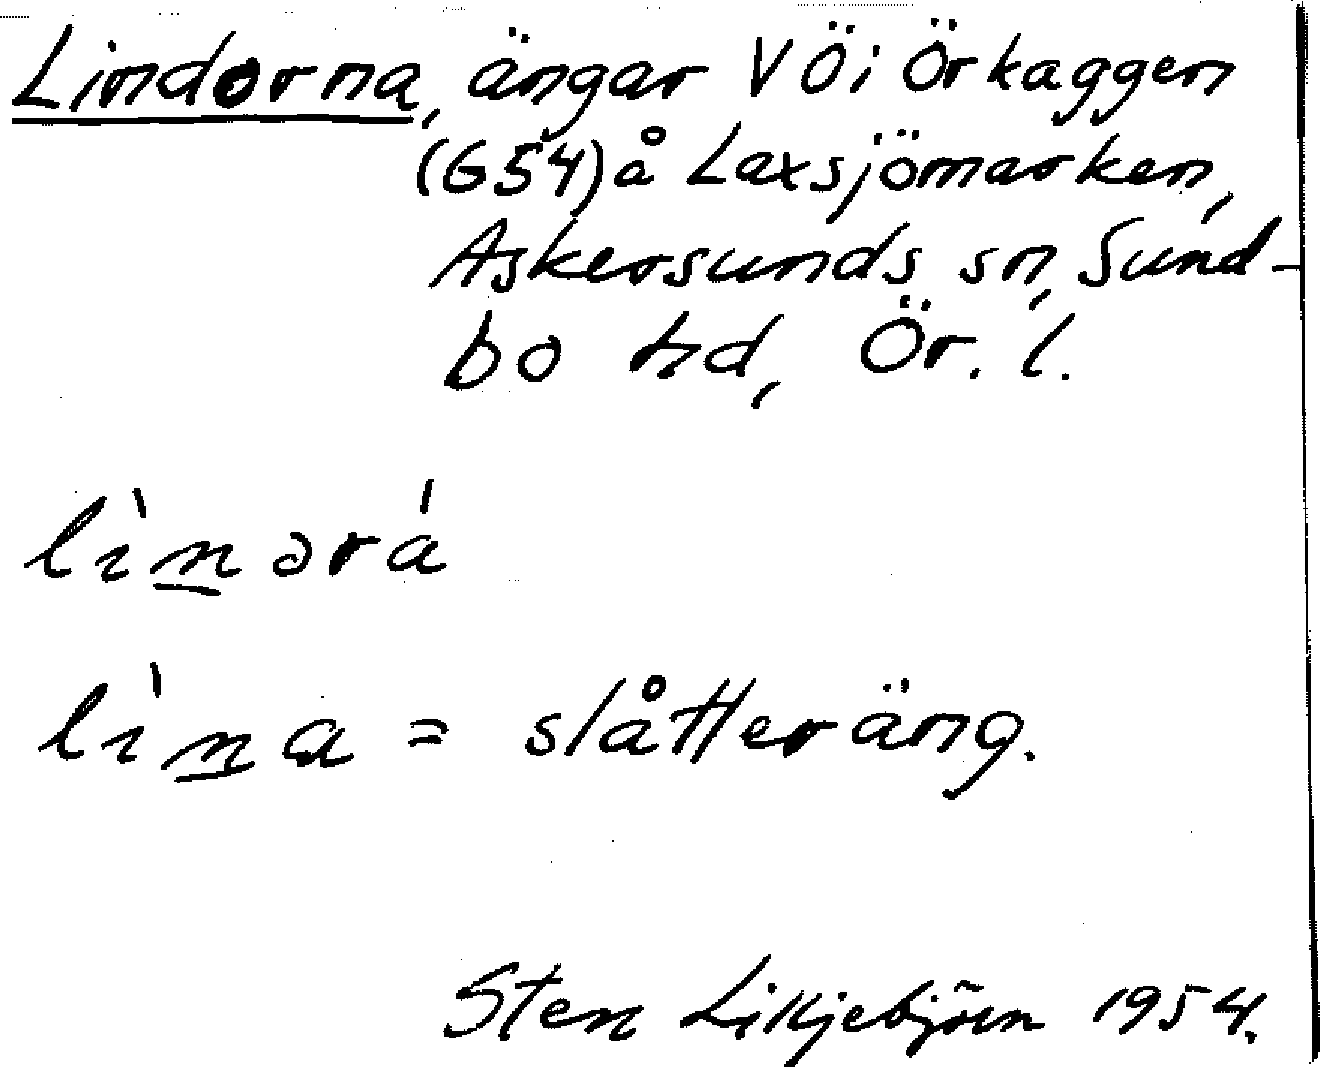 Lindorna, ängar V Ö i Örkaggen
(654) å Laxsjömarken,
Askersunds sn, Sund-
bo hd, Ör. l.
lìnərá
lìna = slåtteräng.
Sten Liljebjörn 1954.